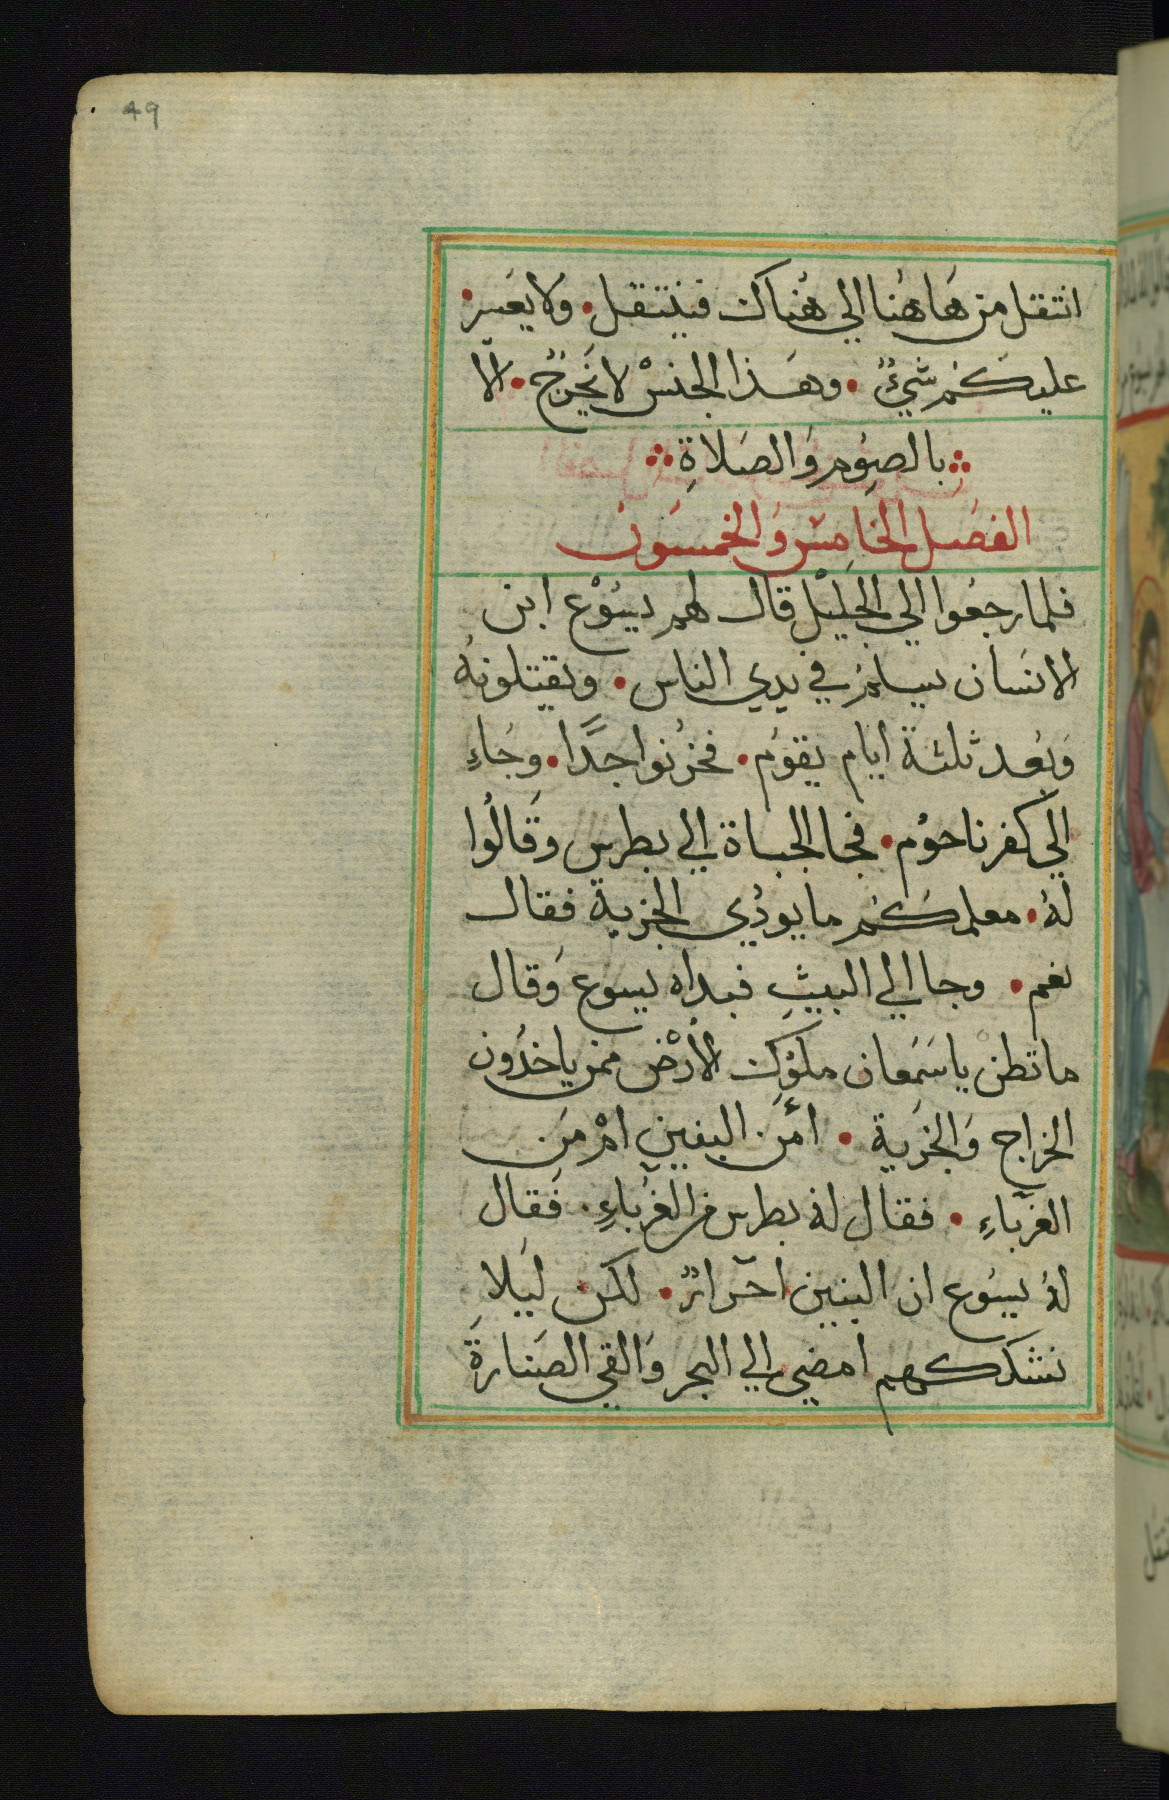 49
انتقل من هَاهُنا الي هُناك فينتقل • ولا يعسر •
عليكم شيءٌ • وهَذا الجنسْ لا يَخرجُ • الّا
بالصوِم وَالصَلاةِ
الفصَل الخامسْ وَالخمسَون
فلما رجعُوا الي الجليْل قال لهم يسُوْع ابن
الانسَان يسلم في يدي الناس • ويقتلونهُ
وَبعْد ثلثة ايام يقوُم • فحزنوا جدًا • وجَاءِ
الي كفرناحوُم • فجا الجباة الي بطرس وَقَالُوا
لهُ • معلمكُم ما يودُي الجزية فقال
نعم • وجا الي البيتِ فبداه يسوع وَقال
ما تظن يا سَمَعان ملوُك الأرْض ممن ياخذُون
الخراج وَالجزَية • أمَن البنين امْ مَن
الغربَاءِ • فقال لهُ بطرس من الغُربَاءِ • فَقال
لهُ يسَوع ان البنين احَرارٌ • لكن ليَلا
نشككهم امضي الي البحر وَالقي الصَنارةَ